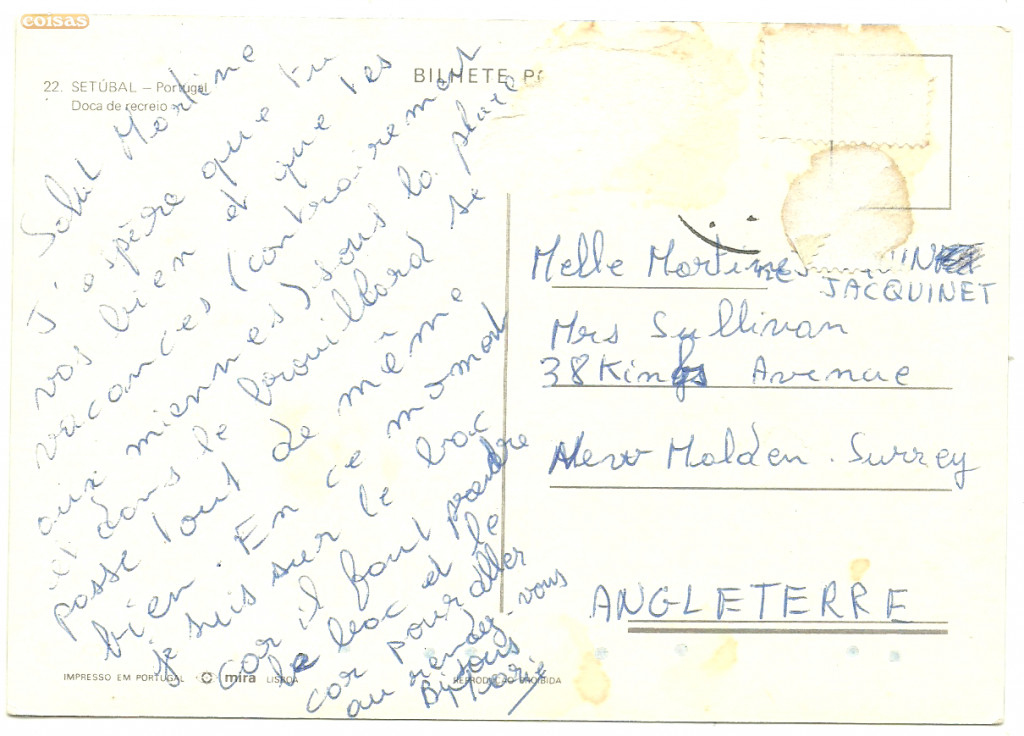 coisas
22. SETÚBAL – Portugal
Doca de recreio
BILHETE
Salut Martine
J'espère que tu
vas bien et que tes
vacances (contrairement
aux miennes) sous la pluie
et dans le brouillard se
passe tout de même
bien. En ce moment
je suis sur le bac
car il faut prendre
le bac et le
car pour aller
au rendez-vous
Bisous
Marie
Melle Martine
JACQUINET
Mrs Sullivan
38 Kings Avenue
New Malden. Surrey
ANGLETERRE
IMPRESSO EM PORTUGAL
mira LISBOA
REPRODUÇÃO PROIBIDA